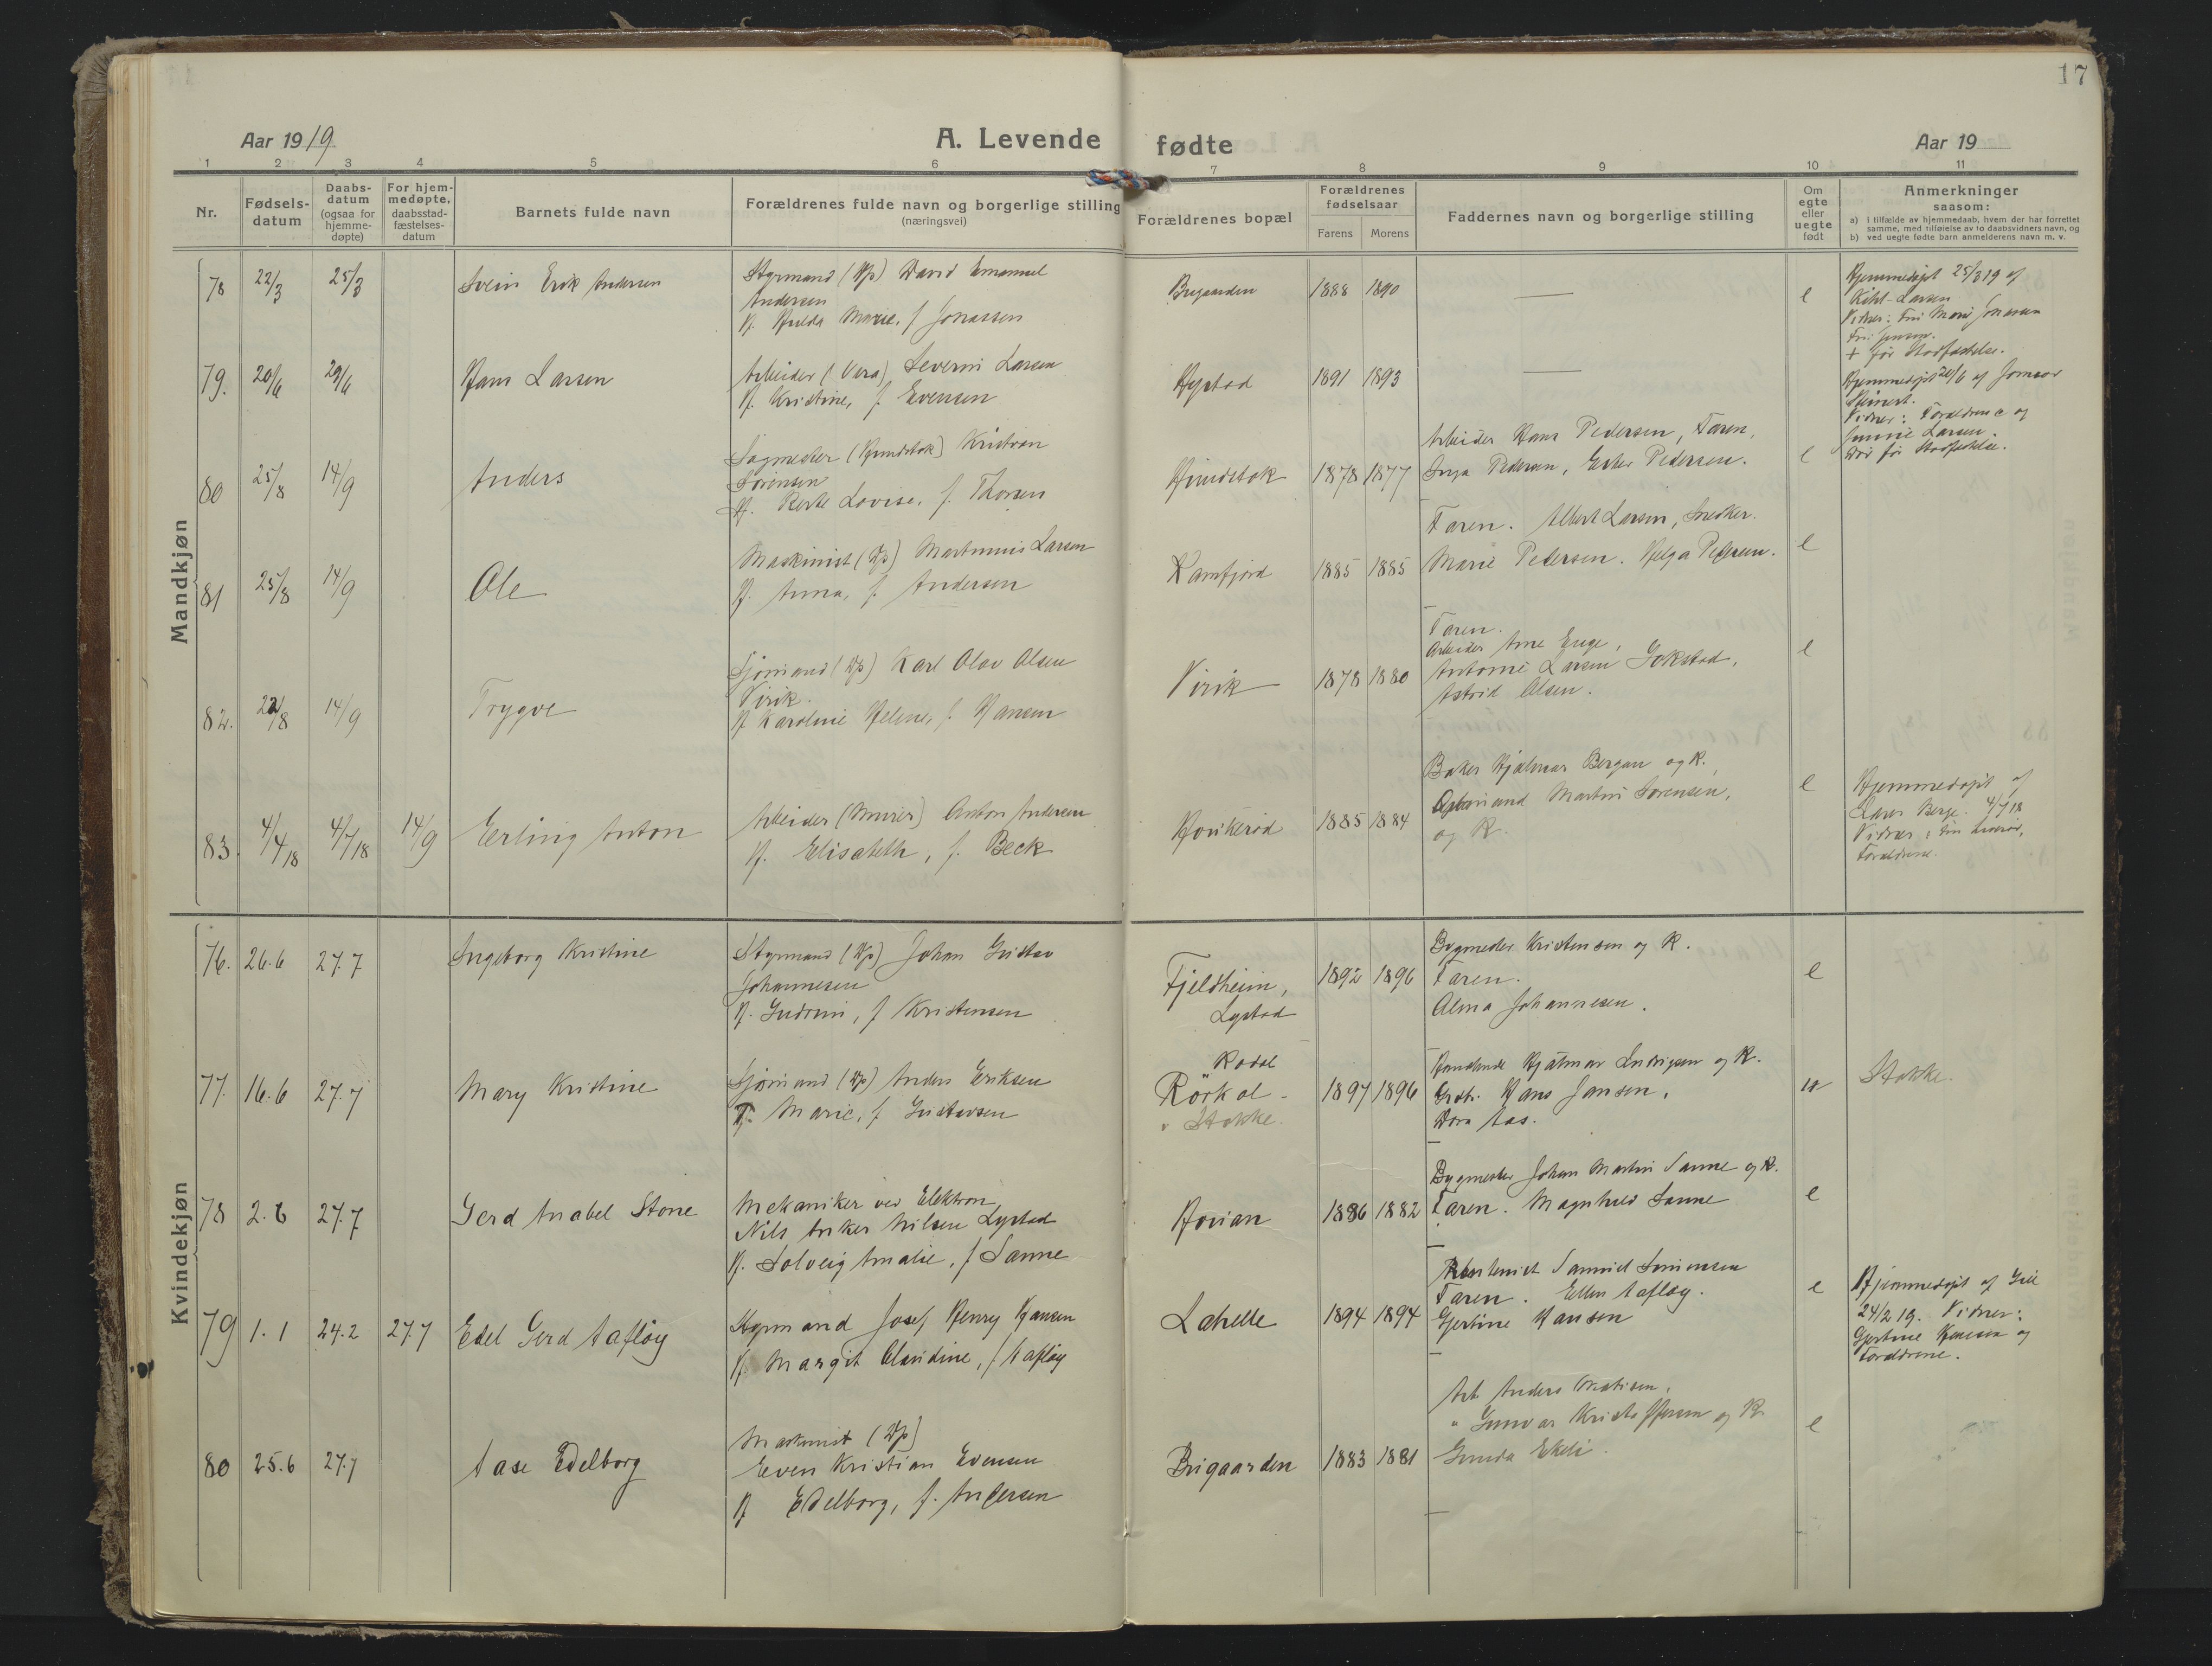 17
Aar 1919
A. Levende fødte
Aar 19
1 2 3 4 5 6 7 8 9 10 11
Nr.
Fødsels-
datum
Daabs-
datum
(ogsaa for
hjemme-
døpte)
For hjem-
medøpte,
daabsstad-
fæstelses-
datum
Barnets fulde navn
Forældrenes fulde navn og borgerlige stilling
(næringsvei)
Forældrenes bopæl
Forældrenes
fødselsaar
Farens Morens
Faddernes navn og borgerlige stilling
Om
egte
eller
uegte
født
Anmerkninger
saasom:
a) i tilfælde av hjemmedaab, hvem der har forrettet
samme, med tilføielse av to daabsvidners navn, og
b) ved uegte fødte barn anmelderens navn m. v.
Mandkjøn
78 22/3 25/3 Svein Erik Andersen
Styrmand (Hp) David Emanuel
Andersen
H. Hulda Marie, f. Jonassen
Brugaarden 1888 1890 — e
Hjemmedøpt 25/3 19 af
Kihl-Larsen
Vidner: Fru Marie Jonassen
Fru
+ før Stadfæstelse.
79. 20/6 29/6 Hans Larsen
Arbeider (Vera) Severin Larsen
H. Kristine, f. Evensen
Hystad 1891 1893 —
Hjemmedøpt 20/6 af
Vidner: Forældrene og
Larsen.
Død før Stadfæstelse.
80 25/8 14/9 Anders
Sagmester (Hunndstok) Kristian
Sørensen
H. Berte Lovise, f. Thorsen
Hunndstok 1878 1877
Arbeider Hans Pedersen, Faren,
Inga Pedersen, Ester Pedersen.
e
81 25/8 14/9 Ole
Maskinist (Hp) Martinius Larsen
H. Anna, f. Andersen
Kamfjord 1885 1885
Faren. Albert Larsen, Snedker.
Marie Pedersen. Helga Pedersen.
e
82. 22/8 14/9 Trygve
Sjømand (Hp) Karl Olav Olsen
Virik.
H. Karoline Helene, f. Hansen
Virik 1878 1880
Faren.
Arbeider Arne Enge,
Antonie Larsen Gokstad,
Astrid Olsen.
e
83. 4/4 18 4/7 18 14/9 Erling Anton
Arbeider (Murer) Anton Andersen
H. Elisabeth, f. Beck
Hovikerød 1885 1884
Baker Hjalmar Bergan og K.,
Martin Sørensen,
og K.
e
Hjemmedøpt af
Lærer Berge. 4/7 18
Vidner: Fru
Forældrene.
Kvindekjøn
76. 26.6 27.7 Ingeborg Kristine
Styrmand (Hp) Johan Gustav
Johannesen
H. Gudrun, f. Kristensen
Fjeldheim,
Lystad
1892 1896
Bygmester Kristensen og K.
Faren.
Alma Johannesen.
e
77. 16.6 27.7 Mary Kristine
Sjømand (Hp) Anders Eriksen
Marie, f. Gustavsen
Rodal
Rörkol -
i Stokke.
1897 1896
Handlende Hjalmar Ludvigsen og K.
Grdbr. Hans Jansen,
Dora Aas.
u
Stokke.
78 2.6 27.7 Gerd Anabel Stone
Mekaniker ved Elektron
Nils Anker Nilsen Lystad
H. Solveig Amalie, f. Sanne
Hovian 1886 1882
Bygmester Johan Martin Sanne og K.
Faren. Magnhild Sanne
e
79 1.1 24.2 27.7 Edel Gerd Aafløy
Styrmand Josef Henry Hansen
H. Margit Claudine, f. Aafløy
Lahelle 1894 1894
Samuel Simensen
Faren. Ellen Aafløy.
Gjertine Hansen
e
Hjemmedøpt af
24/2 19. Vidner:
Gjertine Hansen og
Forældrene.
80 25.6 27.7 Aase Edelborg
Maskinist (Hp)
Even Kristian Evensen
H. Edelborg, f. Andersen
Brigaarden 1883 1881
Arb. Anders Mathisen,
" Gunvar Kristoffersen og K.
Gunda Ekeli.
e